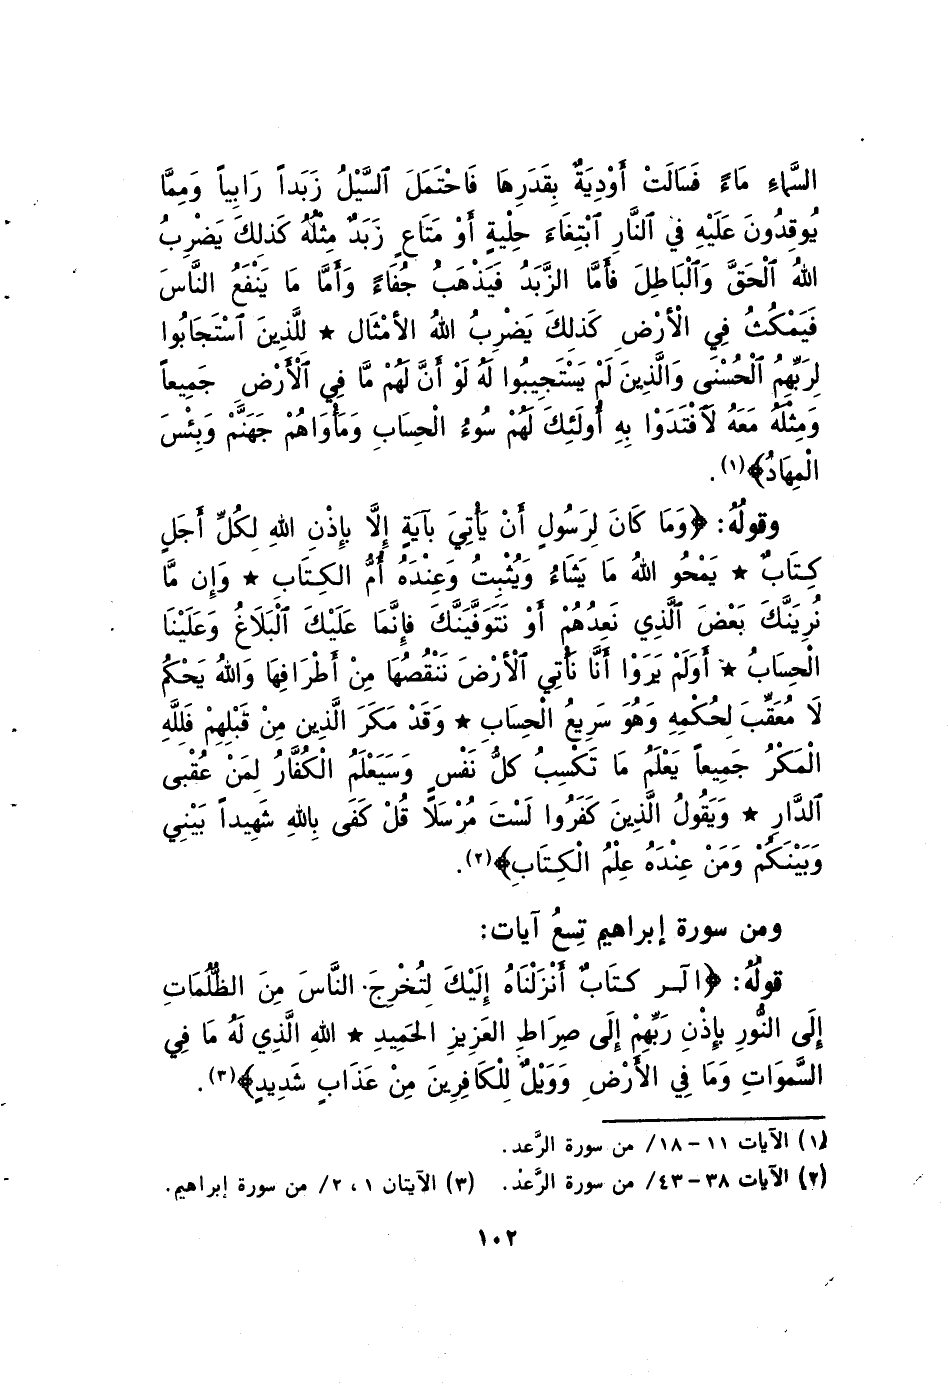 السَّمَاءِ مَاءً فَسَالَتْ أَوْدِيَةٌ بِقَدَرِهَا فَاحْتَمَلَ ٱلسَّيْلُ زَبَداً رَابِياً وَمِمَّا
يُوقِدُونَ عَلَيْهِ فِي ٱلنَّارِ ٱبْتِغَاءَ حِلْيةٍ أَوْ مَتَاعٍ زَبَدٌ مِثْلُهُ كَذلِكَ يَضْرِبُ
اللهُ ٱلْحَقَّ وَٱلْبَاطِلَ فَأَمَّا الزَّبَدُ فَيَذْهَبُ جُفَاءً وَأَمَّا مَا يَنْفَعُ النَّاسَ
فَيَمْكُثُ فِي الْأَرْضِ كَذلِكَ يَضْرِبُ اللهُ الأمْثَال ★ للَّذِينَ ٱسْتَجَابُوا
لِرَبِّهِمُ ٱلْحُسْنَى وَالَّذِينَ لَمْ يَسْتَجِيبُوا لَهُ لَوْ أَنَّ لَهُمْ مَّا فِي ٱلْأَرْضِ جَمِيعاً
وَمِثْلَهُ مَعَهُ لَآفْتَدَوْا بِهِ أُولَئِكَ لَهُمْ سُوءُ الْحِسَابِ وَمَأْوَاهُمْ جَهَنَّمُ وَبِئْسَ
الْمِهَادُ﴾(١).
وقولُهُ: ﴿وَمَا كَانَ لِرَسُولٍ أَنْ يَأْتِيَ بِآيَةٍ إِلَّا بِإِذْنِ اللهِ لِكُلِّ أَجَلٍ
كِتَابٌ ★ يَمْحُو اللهُ مَا يَشَاءُ وَيُثْبِتُ وَعِنْدَهُ أُمُّ الكِتَابِ ★ وَإِن مَّا
نُرِيَنَّكَ بَعْضَ ٱلَّذِي نَعِدُهُمْ أَوْ نَتَوَفَّيَنَّكَ فَإِنَّمَا عَلَيْكَ ٱلْبَلَاغُ وَعَلَيْنَا
الْحِسَابُ ★ أَوَلَمْ يَرَوْا أَنَّا نَأْتِي ٱلْأَرْضَ نَنْقُصُهَا مِنْ أَطْرَافِهَا وَاللهُ يَحْكُمُ
لَا مُعَقِّبَ لِحُكْمِهِ وَهُوَ سَرِيعُ الْحِسَابِ ★ وَقَدْ مَكَرَ الَّذِين مِنْ قَبْلِهِمْ فَلِلَّهِ
الْمَكْرُ جَمِيعاً يَعْلَمُ مَا تَكْسِبُ كلُّ نَفْسٍ وَسَيَعْلَمُ الكُفَّارُ لِمَنْ عُقْبى
ٱلدَّارِ ★ وَيَقُولُ الَّذِينَ كَفَرُوا لَسْتَ مُرْسَلًا قُلْ كَفَى بِاللهِ شَهِيداً بَيْنِي
وَبَيْنَكُمْ وَمَنْ عِنْدَهُ عِلْمُ الْكِتَابِ﴾(٢).
ومن سورة إبراهيم تِسعُ آيات:
قولُهُ: ﴿الٓـر كتابٌ أَنْزَلْنَاهُ إِلَيْكَ لِتُخْرِجَ النَّاسَ مِنَ الظُّلُمَاتِ
إِلَى النُّورِ بِإِذْنِ رَبِّهِمْ إِلَى صِرَاطِ العَزِيزِ الحَمِيدِ ★ اللهِ الَّذِي لَهُ مَا فِي
السَّموَاتِ وَمَا فِي الأَرْضِ وَوَيْلٌ لِلْكَافِرِينَ مِنْ عَذَابٍ شَدِيدٍ﴾(٣).
(١) الآيات ١١ – ١٨/ من سورة الرَّعد.
(٢) الآيات ٣٨ – ٤٣/ من سورة الرَّعدْ. (٣) الآيتان ١ ، ٢/ من سورة إبراهيم.
١٠٢